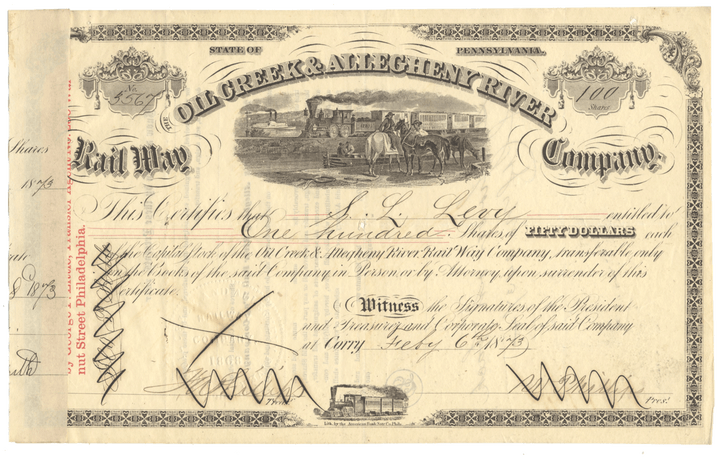 STATE OF PENNSYLVANIA.
No. 5567
100
Shares
THE OIL CREEK & ALLEGHENY RIVER
Rail Way Company.
Shares
1873
This Certifies that S. L. Levy entitled to
One hundred Shares of FIFTY DOLLARS each
in the Capital Stock of the Oil Creek & Allegheny River Rail Way Company, transferable only
on the Books of the said Company in Person or by Attorney, upon surrender of this
Certificate.
1873
Witness the Signatures of the President
and Treasurer and Corporate Seal of said Company
at Corry Feby 6th 1873
Treas.
Pres.
Lith. by the American Bank Note Co. Phila.
nut Street Philadelphia.